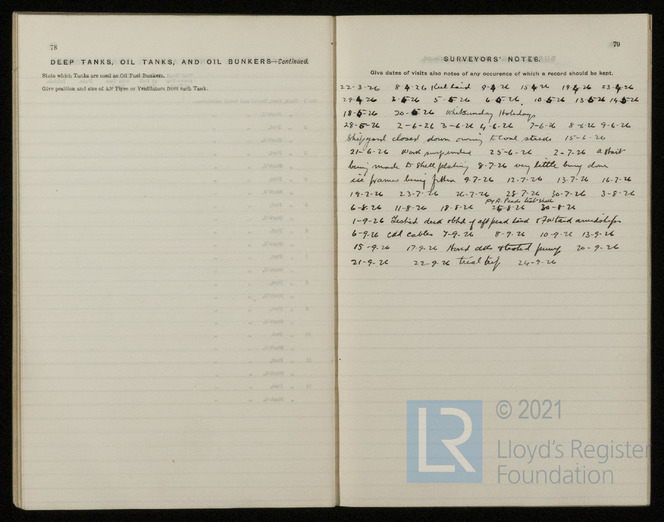 78
DEEP TANKS, OIL TANKS, AND OIL BUNKERS—Continued.
State which Tanks are used as Oil Fuel Bunkers.
Give position and size of Air Pipes or Ventilators from each Tank.
79
SURVEYORS' NOTES.
Give dates of visits also notes of any occurence of which a record should be kept.
22-3-26 8-4-26 Keel laid 9-4-26 15-4-26 19-4-26 23-4-26
29-4-26 3-5-26 5-5-26 6-5-26 10-5-26 13-5-26 14-5-26
18-5-26 20-5-26 Whitsunday Holidays
28-5-26 2-6-26 3-6-26 4-6-26 7-6-26 8-6-26 9-6-26
Shipyard closed down owing to Coal strike 15-6-26
21-6-26 Work suspended 25-6-26 2-7-26 a start
being made to Shell plating 8-7-26 very little being done
frames being 9-7-26 12-7-26 13-7-26 16-7-26
19-7-26 23-7-26 26-7-26 28-7-26 30-7-26 3-8-26
6-8-26 11-8-26 18-8-26 25-8-26 30-8-26
1-9-26 Tested of aft peak
6-9-26 cables 7-9-26 8-9-26 10-9-26 13-9-26
15-9-26 17-9-26 tested 20-9-26
21-9-26 22-9-26 trial 24-9-26
LR
© 2021
Lloyd's Register
Foundation